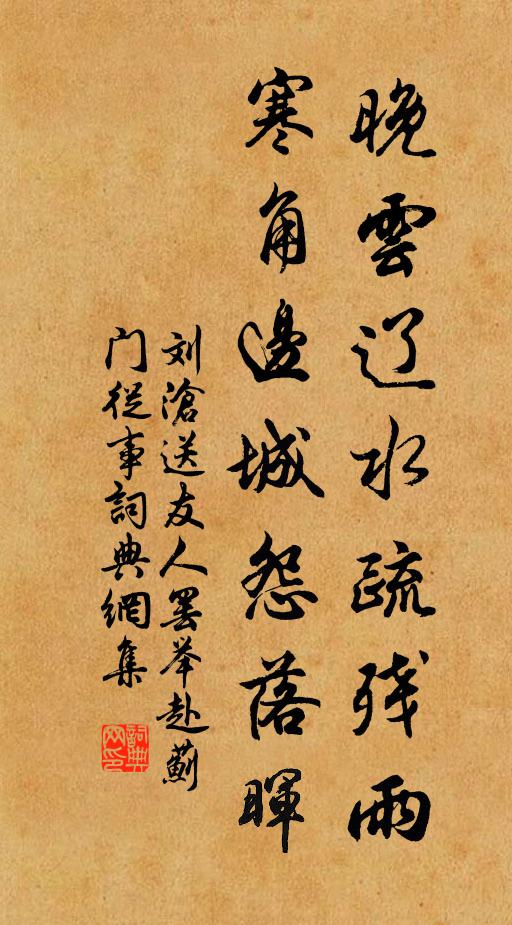 晚雲辽水疏残雨
寒角邊城怨落暉
刘滄送友人罢举赴薊
门從事詞典網集
詞典
网印